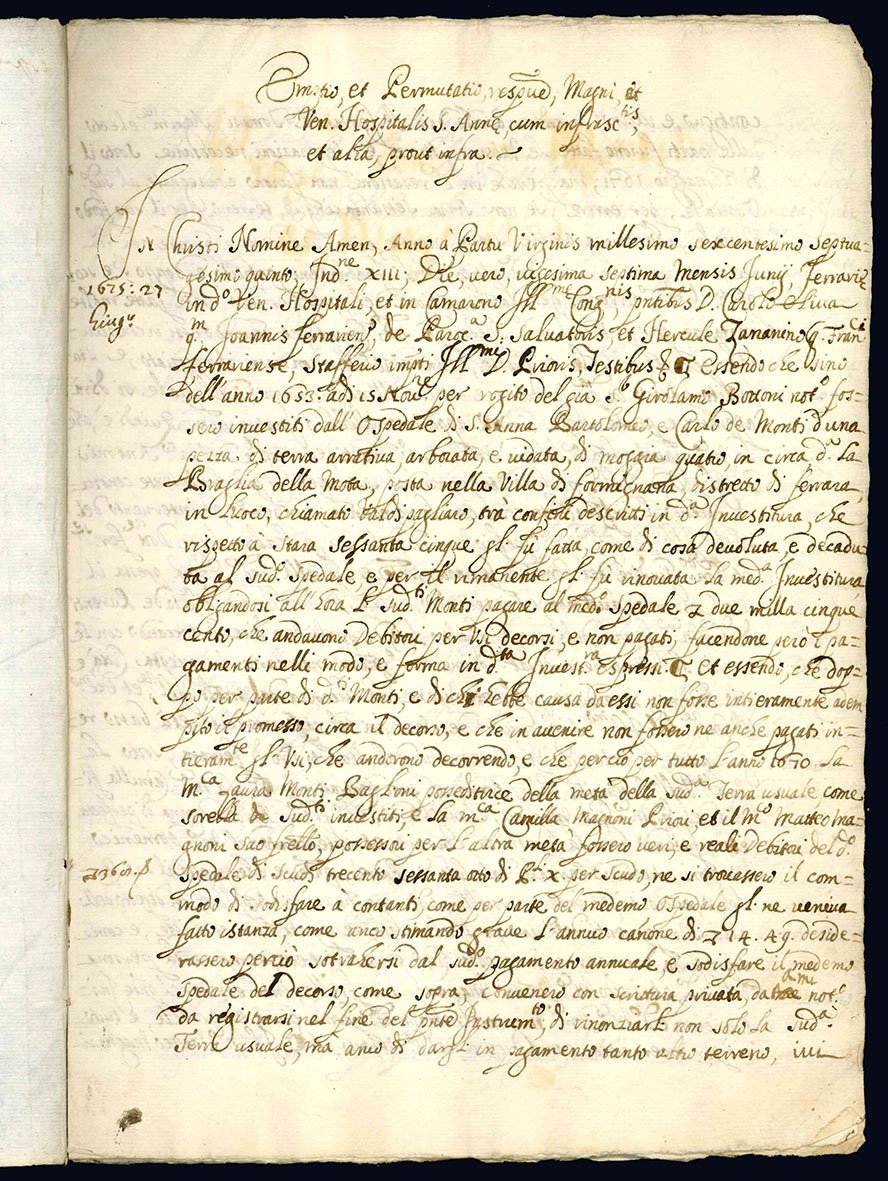 Emptio, et Permutatio, respve, Magni, et
Ven. Hospitalis S. Annę cum infrisctis,
et alia, prout infra.
IN Christi Nomine Amen, Anno à Partu Virginis millesimo sexcentesimo septua=
gesimo quinto, Indne XIII, Die, vero, vigesima septima mensis Junij, Ferrarię
1675: 27
in do Ven. Hospitali, et in Camarono Illme Congnis, pntibus D. Carolo Oliva
Giugo
qm Joannis ferrariens, de Paroca S. Salvatoris, et Hercule Zananino q. Franci
ferrariense, Stafferio impti Illmi D. Prioris, Testibus & essendo che sino
dell'anno 1653: adi 15 Nove per rogito del gia Sr Girolamo Bottoni noto fos=
sero investiti dall'Ospedale di S. Anna Bartolomeo, e Carlo de Monti d'una
pezza di terra arrativa, arborata, e vidata, di mozza quatro, in circa da la
Braglia della Mota, posta nella Villa di formignana, distretto di ferrara,
in luoco, chiamato Valdi pagliaro, tra confini descritti in da Investitura, che
rispetto à stara sessanta cinque gli fù fatta, come di cosa devoluta, e decadu=
ta al sudo spedale, e per il rimanente gli fu rinovata la meda Investitura
obligandosi all'hora li sudti Monti pagare al medo spedale due milla cinque
cento, che andavono Debitori per Usi decorsi, e non pagati, facendone però i pa=
gamenti nelli modo, e forma in dta Investra espressi. Et essendo, che dop=
po per parte di dti Monti, e di chi hebbe causa da essi non fosse intieramente adem
pito il promesso, circa il decorso, e che in avenire non fossero ne anche pagati in=
tieramte gl'Usi, che anderono decorrendo, e che perciò per tutto l'anno 1670. la
Ma Laura Monti Baglioni posseditrice della metà della suda Terra usuale come
sorella de sudti investiti, e la ma Camilla Magnoni Priori, et il Mo Matteo Ma=
gnoni suo frello, possessori per l'altra metà fossero veri, e reali Debitori del do
368.
spedale di scudi trecento sessanta otto di Pli X. per scudo, ne si trovassero il com=
modo di sodisfare à contanti, come per parte del medemo Ospedale gli ne veniva
fatto istanza, come anco stimando grave l'annuo canone di 14. 49. deside=
rassero perciò sotrahersi dal sudo pagamento annuale, e sodisfare il medemo
spedale del decorso, come sopra, convenero con scrittura privata noto
da registrarsi nel fine del pnte Instrumto, di rinonziarli non solo la suda
Terra usuale, ma anco di darli in pagamento tanto altro terreno, ivi